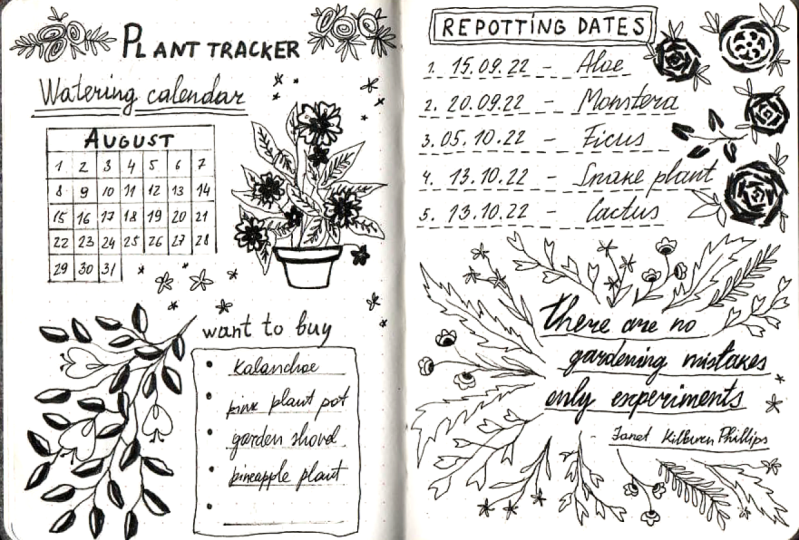 PLANT TRACKER
Watering calendar
AUGUST
1 2 3 4 5 6 7
8 9 10 11 12 13 14
15 16 17 18 19 20 21
22 23 24 25 26 27 28
29 30 31
want to buy
• Kalanchoe
• pink plant pot
• garden shovel
• pineapple plant
•
REPOTTING DATES
1. 15.09.22 - Aloe
2. 20.09.22 - Monstera
3. 05.10.22 - Ficus
4. 13.10.22 - Snake plant
5. 13.10.22 - Cactus
there are no
gardening mistakes
only experiments
- Janet Kilburn Phillips